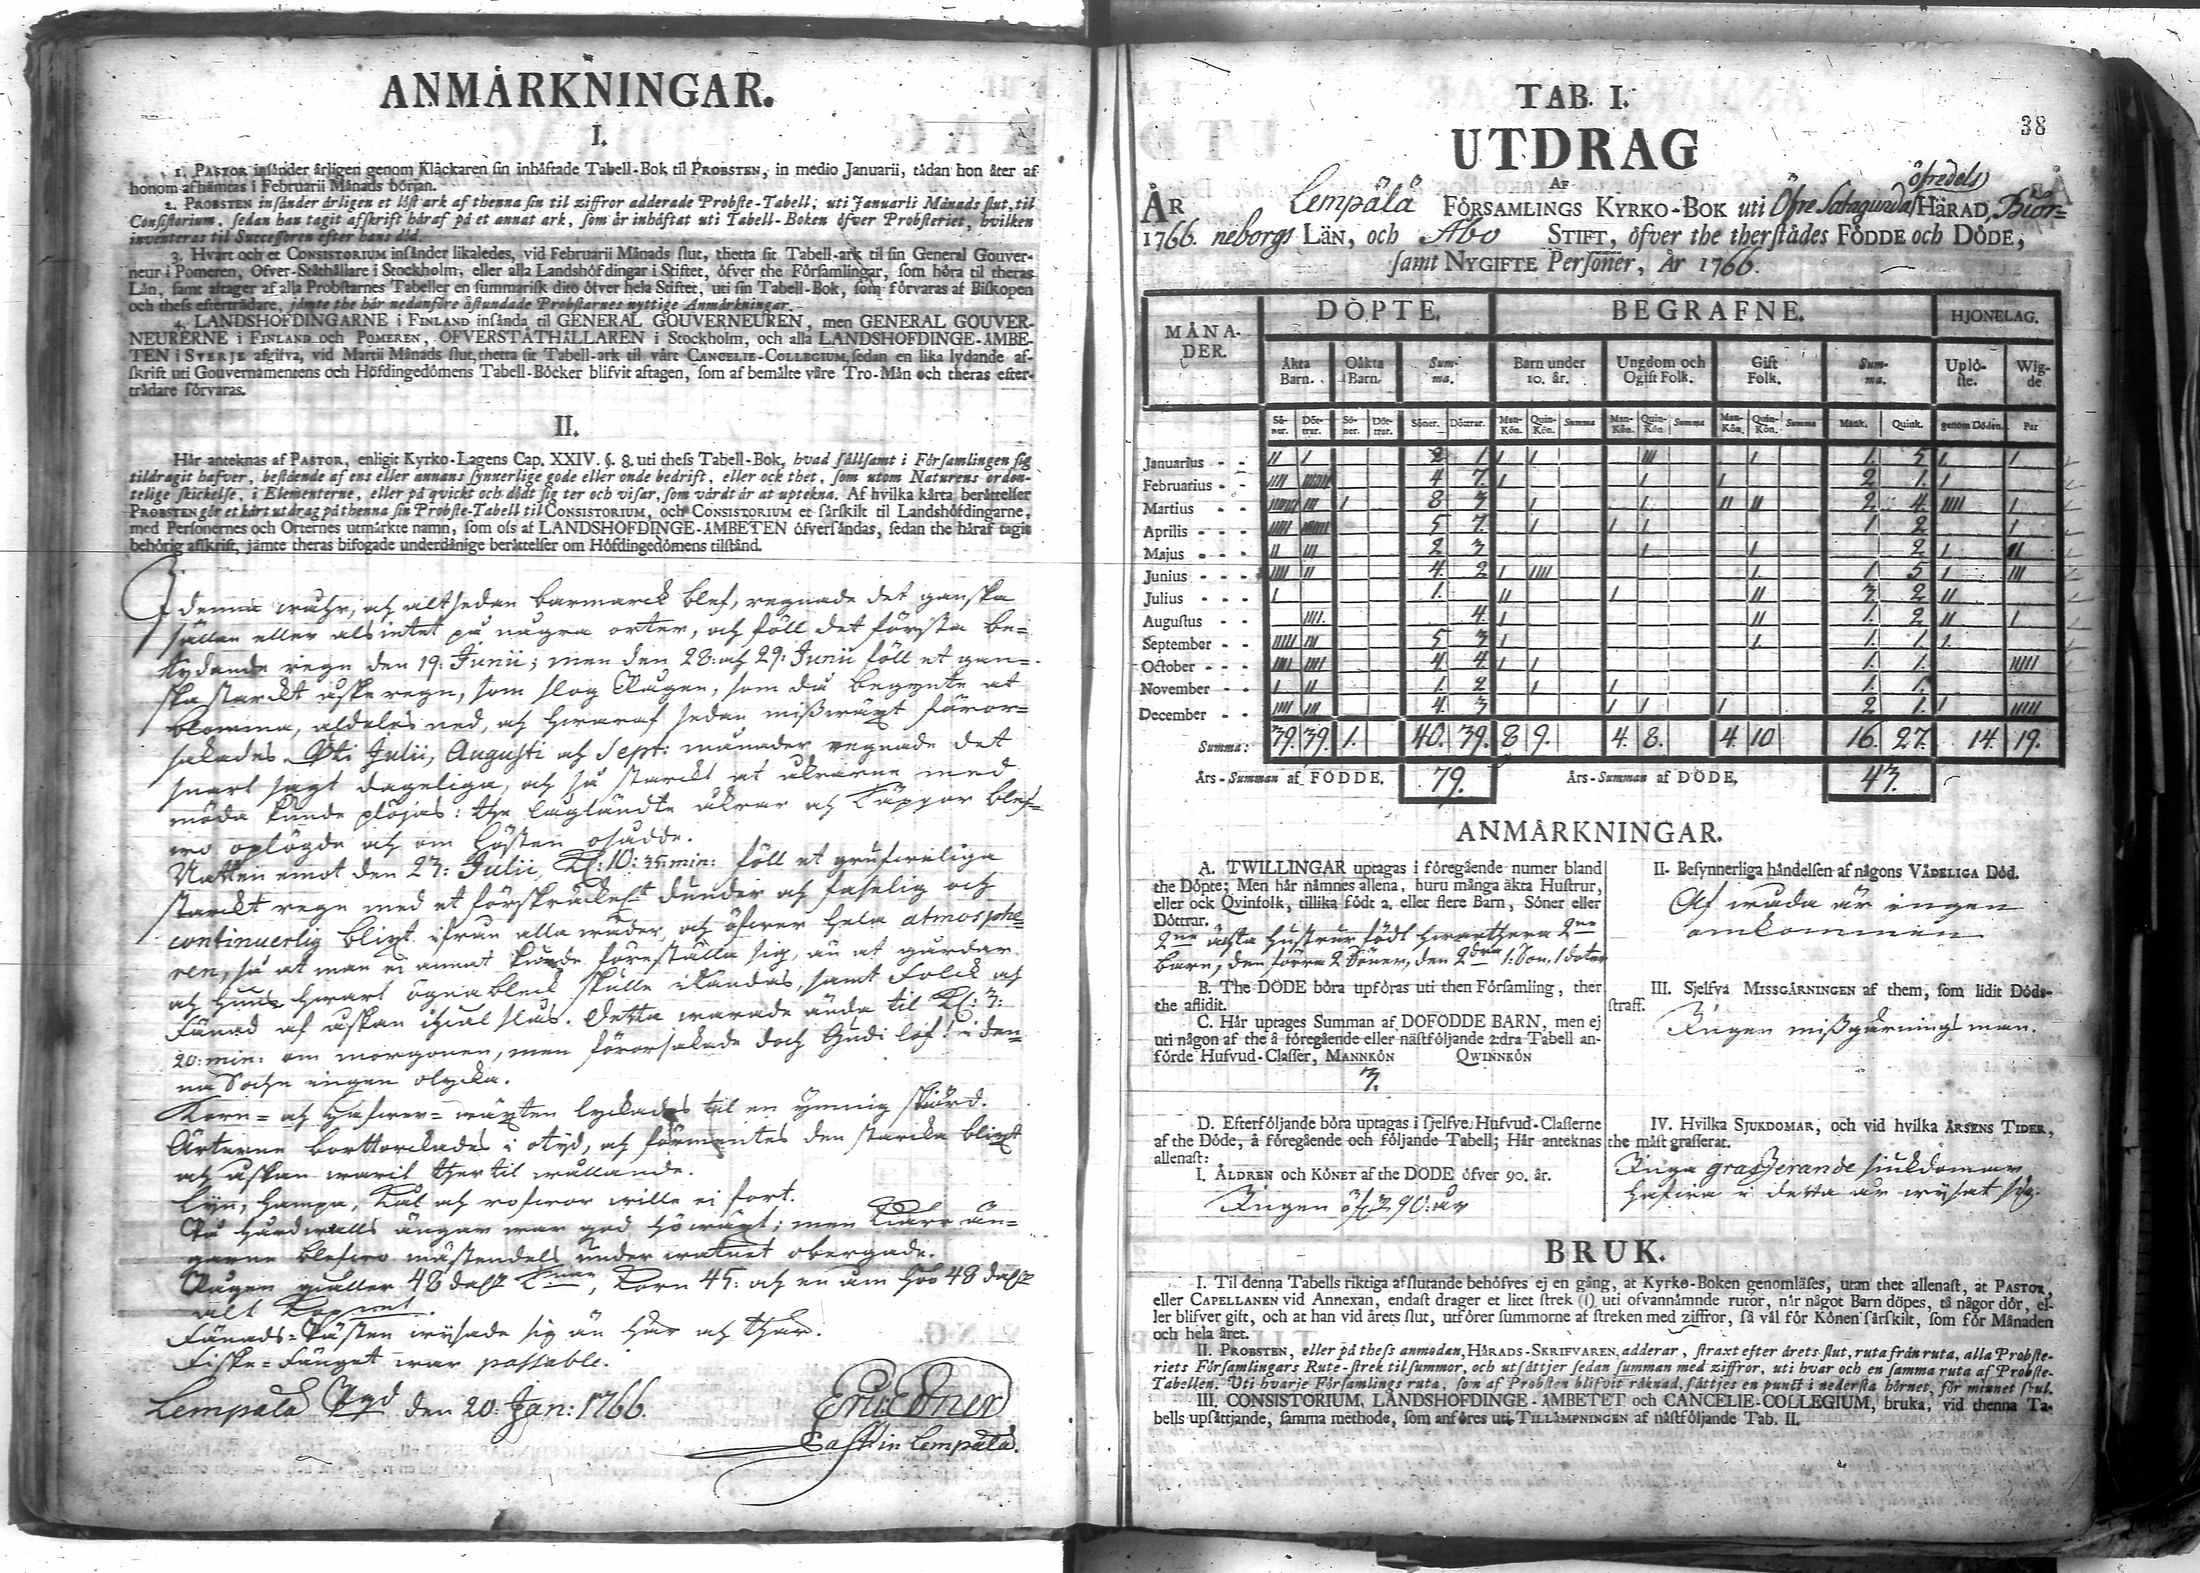 ANMÄRKNINGAR.
I.
1. PASTOR insänder årligen genom Kläckaren sin inhäftade Tabell-Bok til PROBSTEN, in medio Januarii, tädan hon åter af
honom afhämtas i Februarii Månads början.
2. PROBSTEN insänder årligen et löst ark af thenna sin til ziffror adderade Probste-Tabell; uti Januarii Månads slut, til
Consistorium, sedan han tagit afskrift häraf på et annat ark, som är inhäftat uti Tabell-Boken öfver Probsteriet, hvilken
inventeras til Successoren efter hans död.
3. Hvart och et CONSISTORIUM insänder likaledes, vid Februarii Månads slut, thetta sit Tabell-ark til sin General Gouver-
neur i Pomeren, Öfver-Ståthållare i Stockholm, eller alla Landshöfdingar i Stiftet, öfver the Församlingar, som höra til theras
Län, samt aftager af alla Probstarnes Tabeller en summarisk dito öfver hela Stiftet, uti sin Tabell-Bok, som förvaras af Biskopen
och thess efterträdare, jämte the här nedanföre åstundade Probstarnes nyttige Anmärkningar.
4. LANDSHÖFDINGARNE i FINLAND insända til GENERAL GOUVERNEUREN, men GENERAL GOUVER-
NEURERNE i FINLAND och POMEREN, ÖFVERSTÅTHÅLLAREN i Stockholm, och alla LANDSHÖFDINGE-ÄMBE-
TEN i SVERJE afgifva, vid Martii Månads slut, thetta sit Tabell-ark til vårt CANCELIE-COLLEGIUM, sedan en lika lydande af-
skrift uti Gouvernamentens och Höfdingedömens Tabell-Böcker blifvit aftagen, som af bemälte våre Tro-Män och theras efter-
trädare förvaras.
II.
Här anteknas af PASTOR, enligit Kyrko-Lagens Cap. XXIV. §. 8. uti thess Tabell-Bok, hvad sällsamt i Församlingen sig
tildragit hafver, bestående af ens eller annans synnerlige gode eller onde bedrift, eller ock thet, som utom Naturens orden-
telige skickelse, i Elementerne, eller på qvickt och dödt sig ter och visar, som värdt är at uptekna. Af hvilka kårta berättelser
PROBSTEN gör et kårt utdrag på thenna sin Probste-Tabell til CONSISTORIUM, och CONSISTORIUM et särskilt til Landshöfdingarne,
med Personernes och Orternes utmärkte namn, som oss af LANDSHÖFDINGE-ÄMBETEN öfversändas, sedan the häraf tagit
behörig afskrift, jämte theras bifogade underdånige berättelser om Höfdingedömens tilstånd.
I denna wåhr, och altsedan barmarck blef, regnade det ganska
sällan eller als intet på några orter, och föll det första be-
tydande regn den 19: Junii; men den 28: och 29: Junii föll et gan-
ska starckt åskeregn, som slog Rågen, som då begynte at
blomma, aldeles ned, och hwaraf sedan misswäxt föror-
sakades. Uti Julii, Augusti och Sept: månader regnade det
snart sagt dageligen, och så starckt at åkrarne med
möda kunde plöjas: the lägländte åkrar och Käppar blef-
wo oplögde och om hösten osådde.
Natten emot den 23: Julii, Kl: 10: 35 min: föll et grufweliga
starckt regn med et förskräckel: dunder och faselig och
continuerlig blixt ifrån alla wäder, och öfwer hela atmosphe-
ren, så at man ei annat kunde föreställa sig, än at gårdar
och hus hwart ögnableck skulle itändas, samt Folck och
Fänad af åskan ihjäl slås. Detta warade ända til Kl: 3:
20: min: om morgonen, men förorsakade doch Gudi lof! i den-
na Sochn ingen olycka.
Korn- och hafwer-wäxten lyckades til en ymnig skörd.
Ärterne borttorckades i otyd, och förmentes den starcka blixt
och åskan warit ther til wållande.
Lijn, hampa, Kål och rofwor wille ei fort.
På hårdwalls ängar war god höwäxt; men Kiärr än-
garne blefwo mästendels under watnet obergade.
Rågen gialler 48 dalr Kmnt, Korn 45: och en åm höö 48 dalr
alt Kopmt.
Fänads-Pästen wijsade sig än här och thär.
Fiske-Fånget war passable.
Lempälä Pgd den 20. Jan: 1766.
Eric Edner
Past: in Lempälä.
38
TAB. I.
UTDRAG
AF
ÅR Lempälä FÖRSAMLINGS KYRKO-BOK uti Öfre Satagunda öfredels HÄRAD, Biör-
1766. neborgs LÄN, och Åbo STIFT, öfver the therstädes FÖDDE och DÖDE,
samt NYGIFTE Personer, År 1766.
MÅNA-DER. DÖPTE. BEGRAFNE. HJONELAG.
Äkta Barn. Oäkta Barn. Summa. Barn under 10. år. Ungdom och Ogift Folk. Gift Folk. Summa. Uplöste. Wigde
Söner. Döttrar. Söner. Döttrar. Söner. Döttrar. Man-Kön. Quin-Kön. Summa Man-Kön. Quin-Kön Summa Man-Kön. Quin-Kön. Summa Mank. Quink. genom Döden. Par
Januarius - - II I 2 1 I I III I 1. 5. I. I
Februarius - - 4 7. I I I 2 1. I
Martius - - I 8 3 I I II II 2 4. IIII I
Aprilis - - - 5 7. I I I I 1 2 I
Majus - - - II III 2 3 I I 2 I II
Junius - - - IIII II 4. 2 I IIII I 1 5 I III
Julius - - - I 1. II I II 3 2 II
Augustus - - IIII. 4. I II 1 2 II I
September - - IIIII III 5 3 I I. 1. 1. I.
October - - - IIII IIII 4 4 I I 1. 1. IIIII
November - - I II 1. 2 I I 1. 1.
December - - IIII III 4. 3 I I I 2 1. I IIIII
Summa: 39. 39. 1. 40. 39. 8 9. 4. 8. 4 10 16. 27. 14. 19.
Års-Summan af FÖDDE. 79. Års-Summan af DÖDE. 43.
ANMÄRKNINGAR.
A. TWILLINGAR uptagas i föregående numer bland
the Döpte; Men här nämnes allena, huru många äkta Hustrur,
eller ock Qvinfolk, tillika födt 2. eller flere Barn, Söner eller
Döttrar.
2ne ächta hustrur födt hwarthera 2ne
barn, den förra 2 Söner, den 2dra 1. Son, 1 doter
B. The DÖDE böra upföras uti then Församling, ther
the aflidit.
C. Här uptages Summan af DÖFÖDDE BARN, men ej
uti någon af the å föregående eller nästföljande 2:dra Tabell an-
förde Hufvud-Classer, MANNKÖN QWINNKÖN
3.
D. Efterföljande böra uptagas i sjelfve Hufvud-Classerne
af the Döde, å föregående och följande Tabell; Här anteknas
allenast:
I. ÅLDREN och KÖNET af the DÖDE öfver 90. år.
Ingen öfr 90: år
II. Besynnerliga händelsen af någons VÅDELIGA Död.
Af wåda är ingen
omkommen
III. Sjelfva MISSGÄRNINGEN af them, som lidit Döds-
straff.
Ingen missgärnings man.
IV. Hvilka SJUKDOMAR, och vid hvilka ÅRSENS TIDER,
the mäst grasserat.
Inga grasserande siukdomar
hafwa i detta år wijsat sig.
BRUK.
I. Til denna Tabells riktiga afslutande behöfves ej en gång, at Kyrko-Boken genomläses, utan thet allenast, at PASTOR,
eller CAPELLANEN vid Annexan, endast drager et litet strek (I) uti ofvannämnde rutor, när något Barn döpes, tå någor dör, el-
ler blifver gift, och at han vid årets slut, utförer summorne af streken med ziffror, så väl för Könen särskilt, som för Månaden
och hela året.
II. PROBSTEN, eller på thess anmodan, HÄRADS-SKRIFVAREN, adderar, straxt efter årets slut, ruta från ruta, alla Probste-
riets Församlingars Rute-strek til summor, och utsättjer sedan summan med ziffror, uti hvar och en samma ruta af Probste-
Tabellen. Uti hvarje Församlings ruta, som af Probsten blifvit räknad, sättjes en punct i nedersta hörnet, för minnet skul.
III. CONSISTORIUM, LANDSHÖFDINGE-ÄMBETET och CANCELIE-COLLEGIUM, bruka, vid thenna Ta-
bells upsättjande, samma methode, som anföres uti TILLÄMPNINGEN af nästföljande Tab. II.